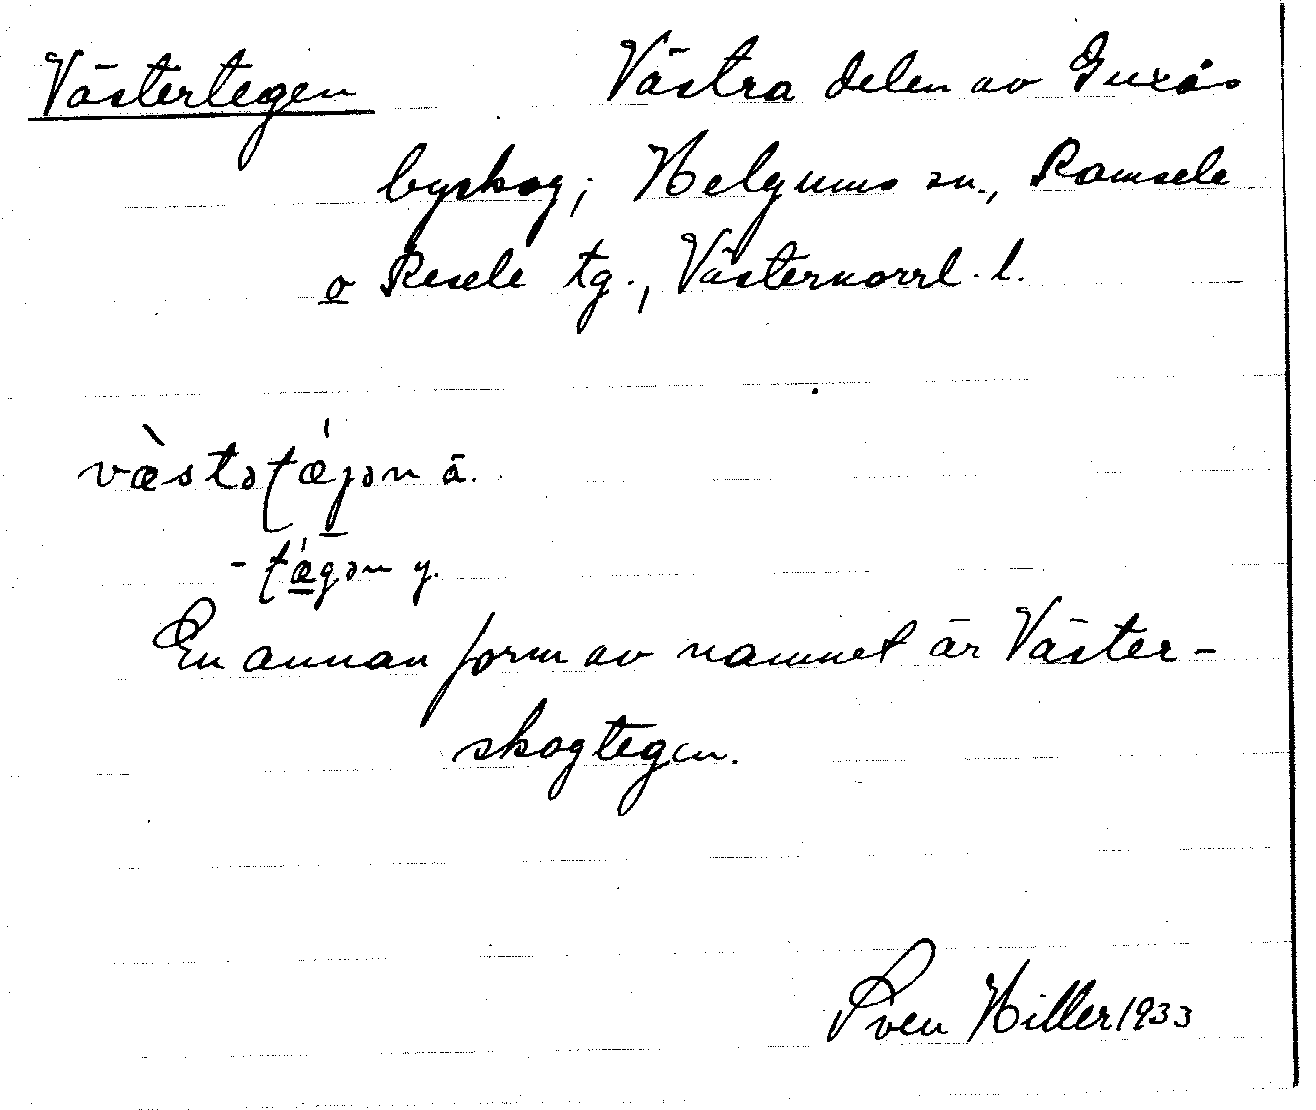 Västertegen Västra delen av Guxås
byskog; Helgums sn., Ramsele
o Resele tg., Västernorrl. l.
væ̀stətǽjən ä.
- tǽgən y.
En annan form av namnet är Väster-
skogtegen.
Sven Hiller 1933